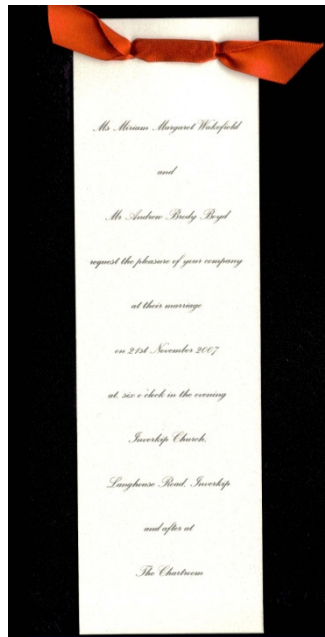 Ms Miriam Margaret Wakefield
and
Mr Andrew Brody Boyd
request the pleasure of your company
at their marriage
on 21st November 2007
at, six o'clock in the evening
Inverkip Church,
Langhouse Road, Inverkip
and after at
The Chartroom